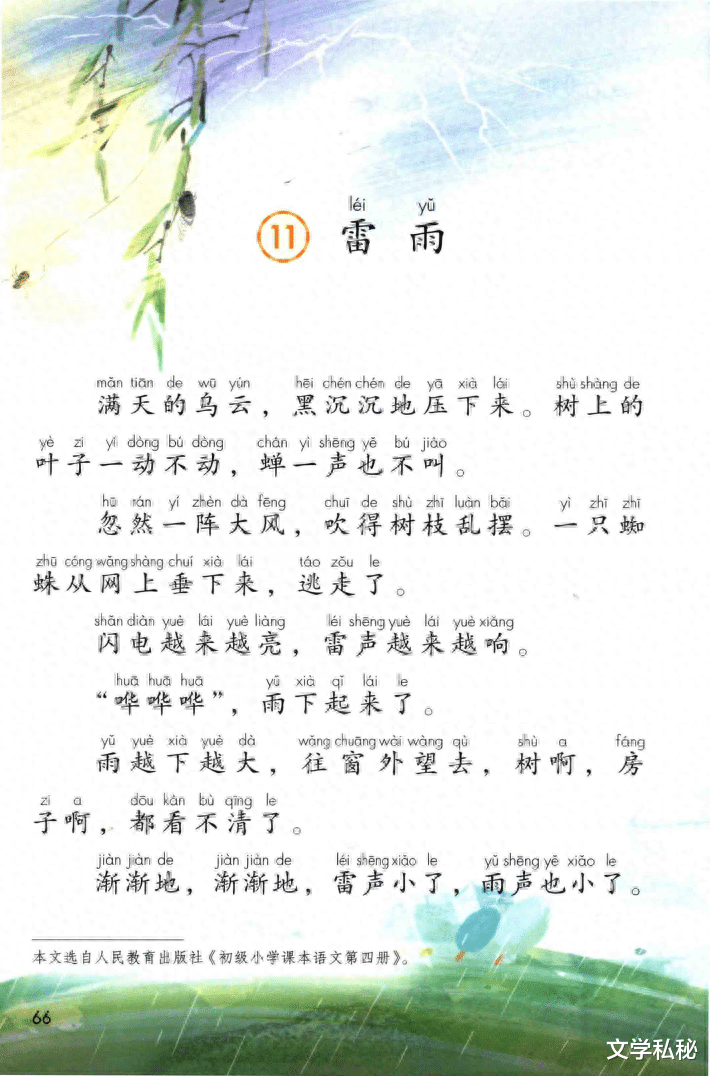 léi yǔ
11 雷雨
mǎn tiān de wū yún hēi chén chén de yā xià lái shù shàng de
满天的乌云，黑沉沉地压下来。树上的
yè zi yí dòng bú dòng chán yì shēng yě bú jiào
叶子一动不动，蝉一声也不叫。
hū rán yí zhèn dà fēng chuī de shù zhī luàn bǎi yì zhī zhī
忽然一阵大风，吹得树枝乱摆。一只蜘
zhū cóng wǎng shàng chuí xià lái táo zǒu le
蛛从网上垂下来，逃走了。
shǎn diàn yuè lái yuè liàng léi shēng yuè lái yuè xiǎng
闪电越来越亮，雷声越来越响。
huā huā huā yǔ xià qǐ lái le
“哗哗哗”，雨下起来了。
yǔ yuè xià yuè dà wǎng chuāng wài wàng qù shù a fáng
雨越下越大，往窗外望去，树啊，房
zi a dōu kàn bù qīng le
子啊，都看不清了。
jiàn jiàn de jiàn jiàn de léi shēng xiǎo le yǔ shēng yě xiǎo le
渐渐地，渐渐地，雷声小了，雨声也小了。
本文选自人民教育出版社《初级小学课本语文第四册》。
66
文学私秘